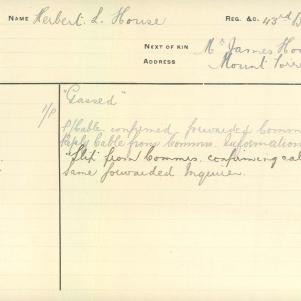 NAME Herbert L. House REG. &C. 43rd B
NEXT OF KIN Mr James Ho
ADDRESS Mount Torre
"Gassed"
1/P P/Cable confirmed forwarded Comm
Reply Cable from Commrs. Information
"flex" from Commrs. confirming cal
same forwarded Inquirer.